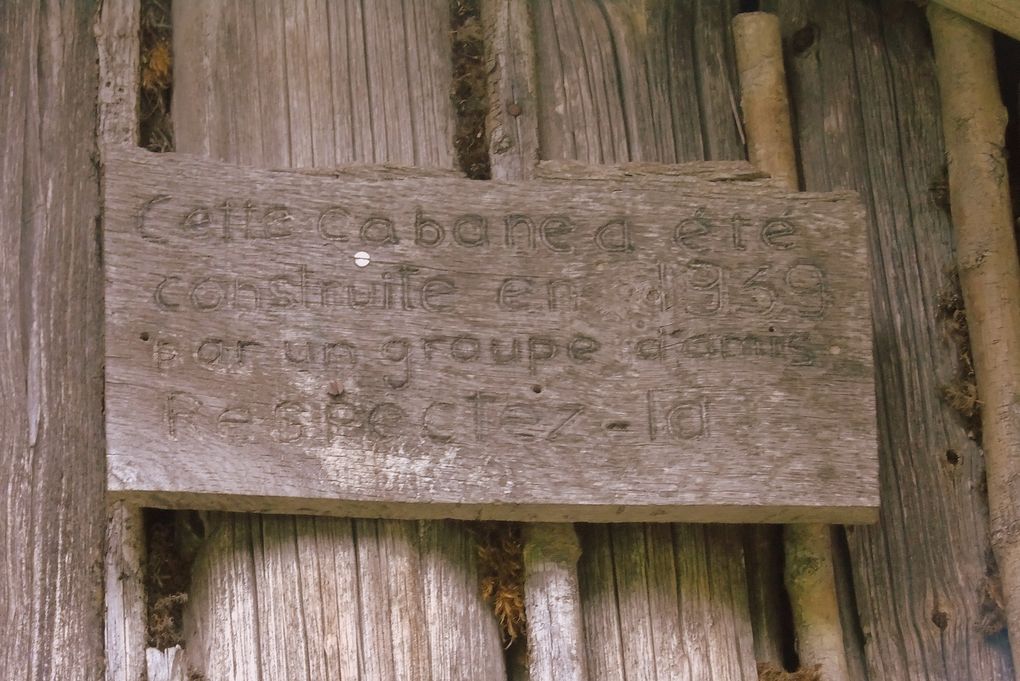 Cette cabane a été
construite en 1939
par un groupe d'amis
Respectez-la